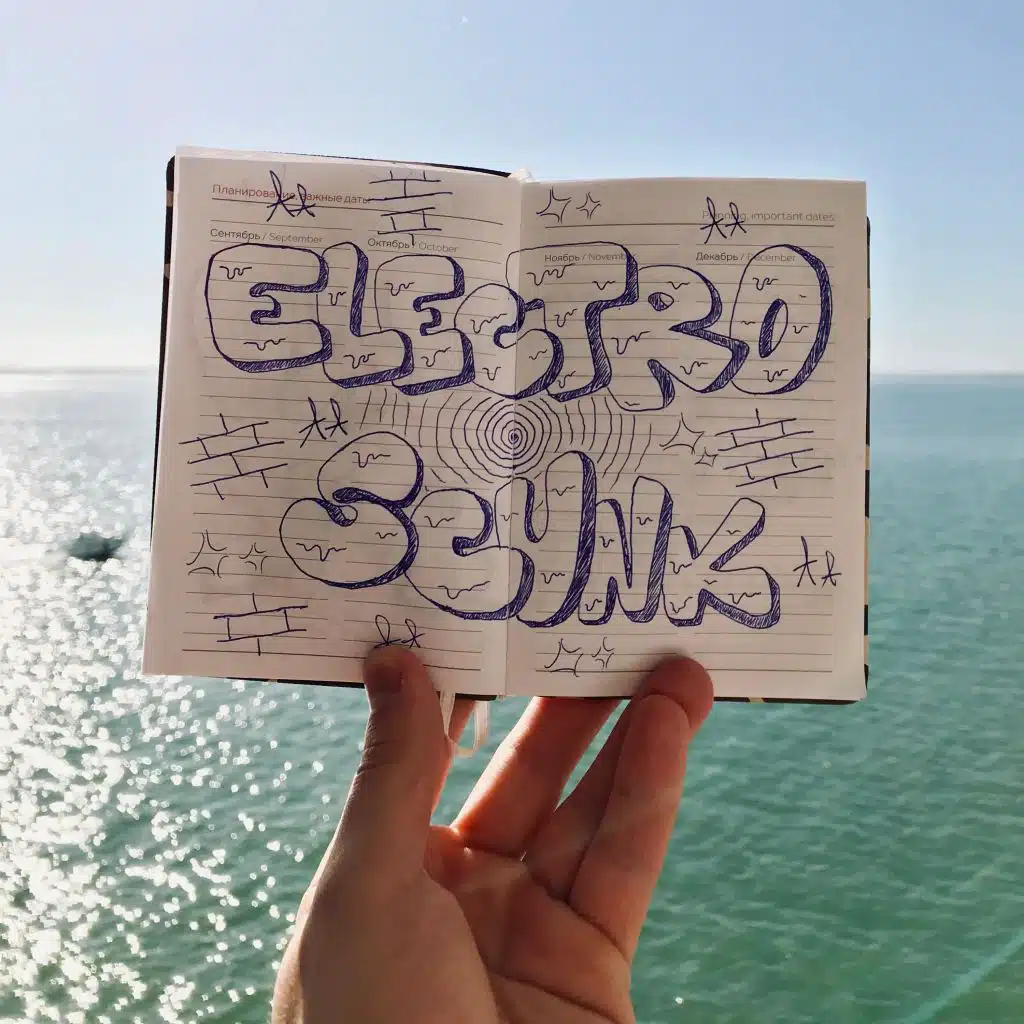 Планирование, важные даты
Planning, important dates:
Сентябрь / September
Октябрь / October
Ноябрь / November
Декабрь / December
ELECTRO
SCYNK